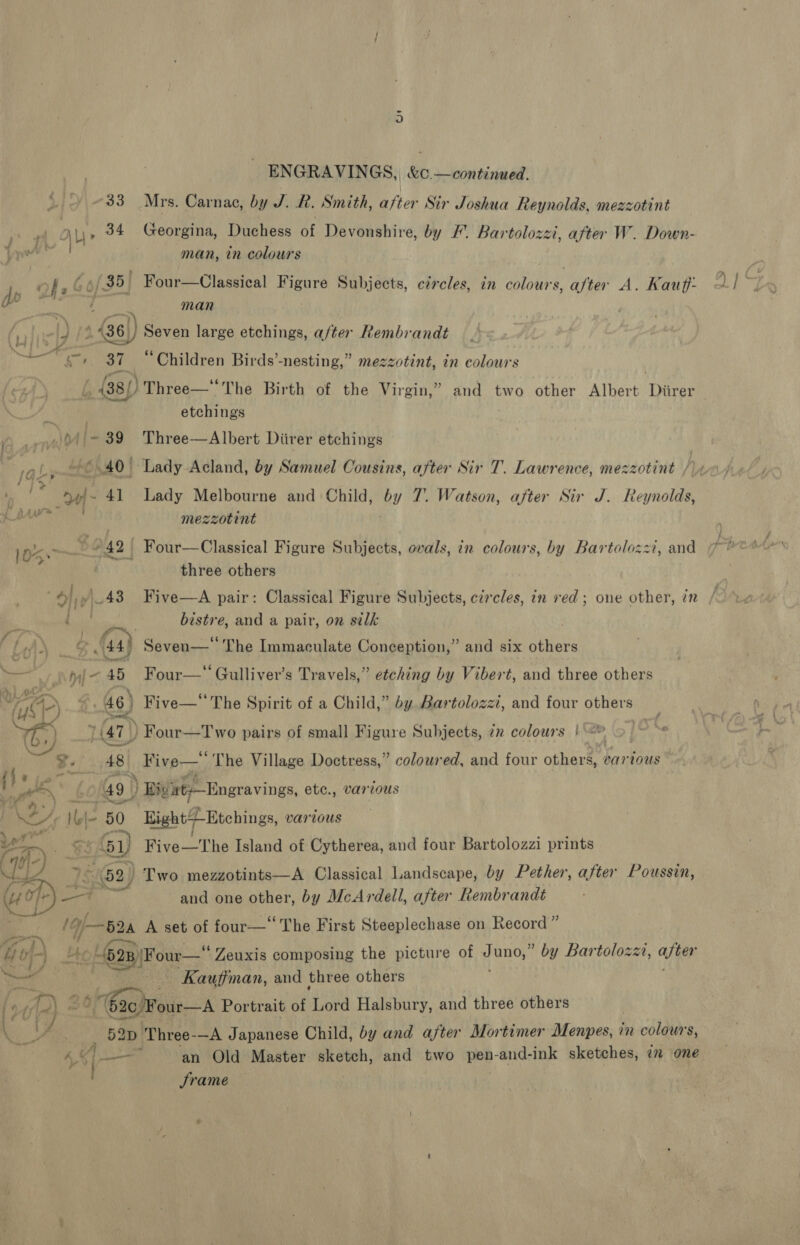 5
ENGRAVINGS, &c.—continued.
33 Mrs. Carnac, by J. R. Smith, after Sir Joshua Reynolds, mezzotint
34 Georgina, Duchess of Devonshire, by F. Bartolozzi, after W. Down-
man, in colours
35 Four—Classical Figure Subjects, circles, in colours, after A. Kauff-
man
36 Seven large etchings, after Rembrandt
37 “Children Birds’-nesting,” mezzotint, in colours
38 Three—“The Birth of the Virgin,” and two other Albert Dürer
etchings
39 Three—Albert Dürer etchings
40 Lady Acland, by Samuel Cousins, after Sir T. Lawrence, mezzotint
41 Lady Melbourne and Child, by T. Watson, after Sir J. Reynolds,
mezzotint
42 Four—Classical Figure Subjects, ovals, in colours, by Bartolozzi, and
three others
43 Five—A pair: Classical Figure Subjects, circles, in red; one other, in
bistre, and a pair, on silk
44 Seven—“The Immaculate Conception,” and six others
45 Four—“Gulliver’s Travels,” etching by Vibert, and three others
46 Five—“The Spirit of a Child,” by Bartolozzi, and four others
47 Four—Two pairs of small Figure Subjects, in colours
48 Five—“The Village Doctress,” coloured, and four others, various
49 —Engravings, etc., various
50 Eight—Etchings, various
51 Five—The Island of Cytherea, and four Bartolozzi prints
52 Two mezzotints—A Classical Landscape, by Pether, after Poussin,
and one other, by McArdell, after Rembrandt
52A A set of four—“The First Steeplechase on Record”
52B Four—“Zeuxis composing the picture of Juno,” by Bartolozzi, after
Kauffman, and three others
52C Four—A Portrait of Lord Halsbury, and three others
52D Three—A Japanese Child, by and after Mortimer Menpes, in colours,
an Old Master sketch, and two pen-and-ink sketches, in one
frame